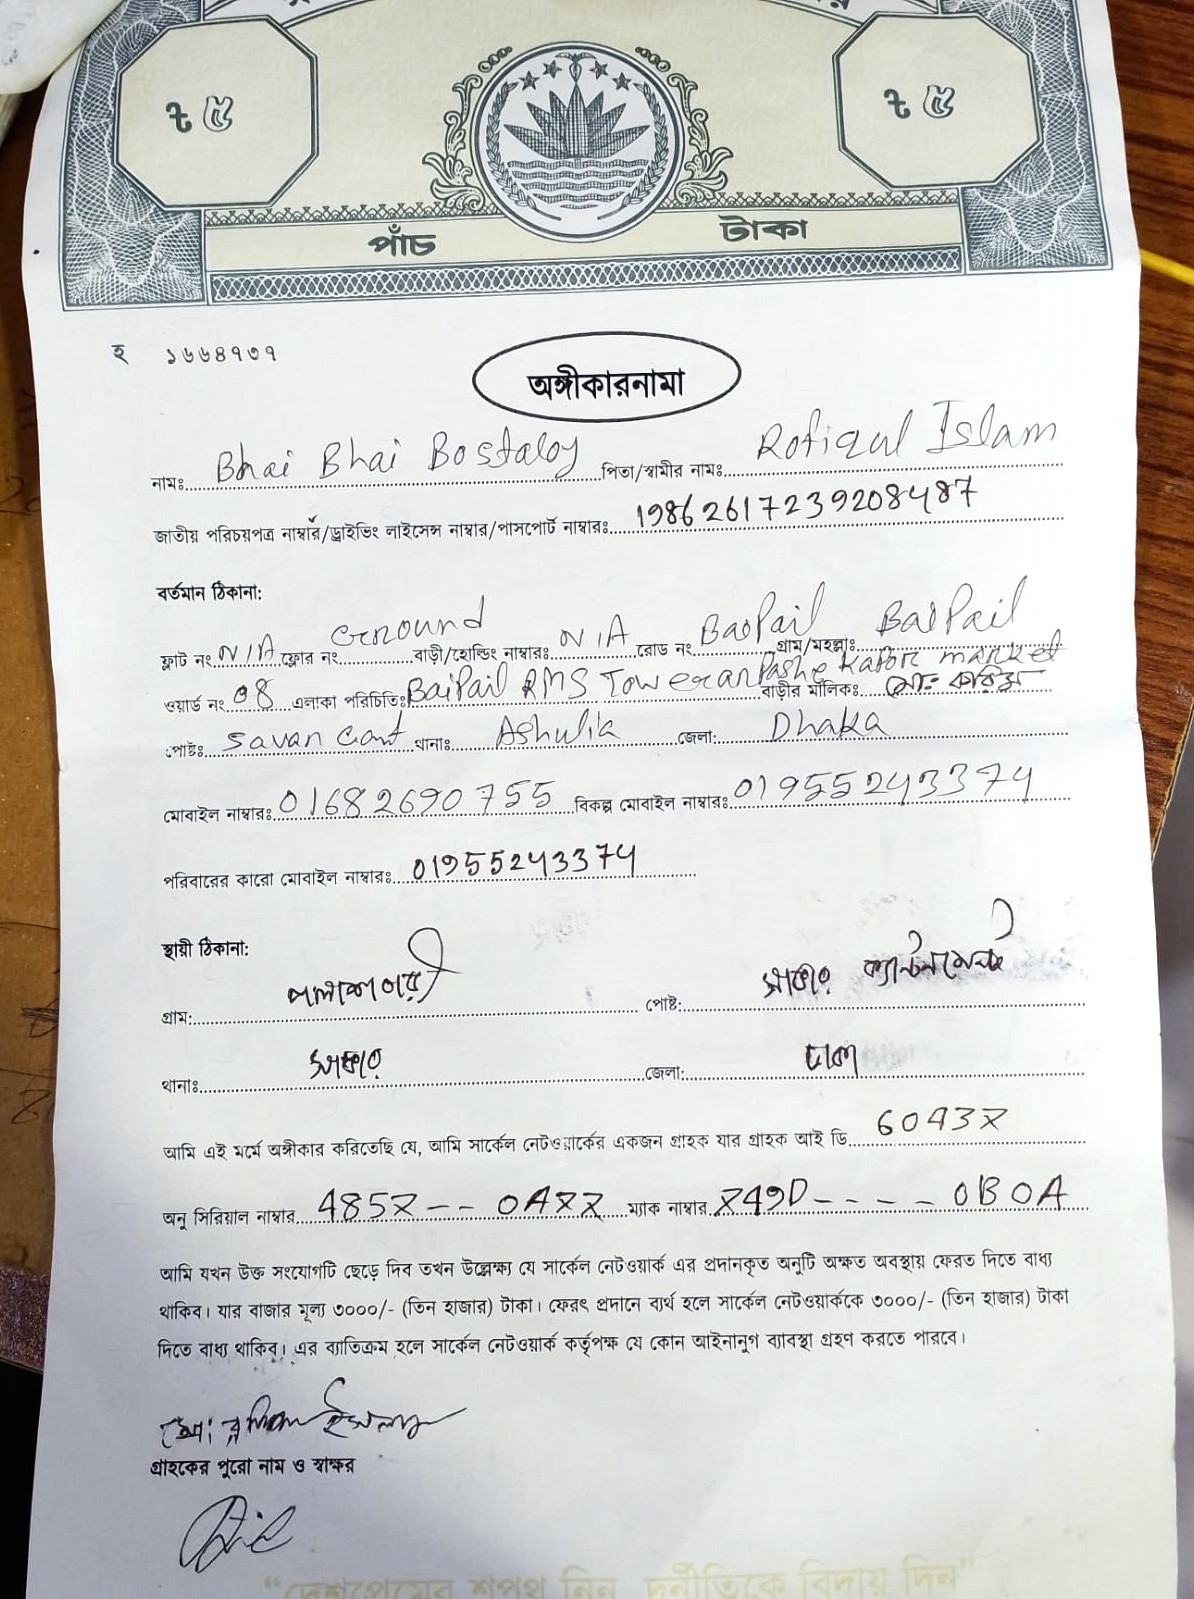 ৳ ৫ ৳ ৫
পাঁচ টাকা
হ ১৬৬৪৭৩৭
অঙ্গীকারনামা
নামঃ Bhai Bhai Bostaloy পিতা/স্বামীর নামঃ Rofiqul Islam
জাতীয় পরিচয়পত্র নাম্বার/ড্রাইভিং লাইসেন্স নাম্বার/পাসপোর্ট নাম্বারঃ 19862617239208487
বর্তমান ঠিকানা:
ফ্লাট নং N/A ফ্লোর নং Ground বাড়ী/হোল্ডিং নাম্বারঃ N/A রোড নং BaiPail গ্রাম/মহল্লাঃ BaiPail
ওয়ার্ড নং 08 এলাকা পরিচিতিঃ BaiPail RMS Toweran Pashe Kapor market বাড়ীর মালিকঃ মোঃ করিম
পোষ্টঃ Savar Cant থানাঃ Ashulia জেলা: Dhaka
মোবাইল নাম্বারঃ 01682690755 বিকল্প মোবাইল নাম্বারঃ 01955243374
পরিবারের কারো মোবাইল নাম্বারঃ 01955243374
স্থায়ী ঠিকানা:
গ্রাম: পলাশবাড়ী পোষ্ট: সাভার ক্যান্টনমেন্ট
থানাঃ সাভার জেলা: ঢাকা
আমি এই মর্মে অঙ্গীকার করিতেছি যে, আমি সার্কেল নেটওয়ার্কের একজন গ্রাহক যার গ্রাহক আই ডি 6043X
অনু সিরিয়াল নাম্বার 485X-- 0AXX ম্যাক নাম্বার X49D---- 0B0A
আমি যখন উক্ত সংযোগটি ছেড়ে দিব তখন উল্লেক্ষ্য যে সার্কেল নেটওয়ার্ক এর প্রদানকৃত অনুটি অক্ষত অবস্থায় ফেরত দিতে বাধ্য
থাকিব। যার বাজার মূল্য ৩০০০/- (তিন হাজার) টাকা। ফেরৎ প্রদানে ব্যর্থ হলে সার্কেল নেটওয়ার্ককে ৩০০০/- (তিন হাজার) টাকা
দিতে বাধ্য থাকিব। এর ব্যাতিক্রম হলে সার্কেল নেটওয়ার্ক কর্তৃপক্ষ যে কোন আইনানুগ ব্যাবস্থা গ্রহণ করতে পারবে।
মো: রফিকুল ইসলাম
গ্রাহকের পুরো নাম ও স্বাক্ষর
“দেশপ্রেমের শপথ নিন, দুর্নীতিকে বিদায় দিন”